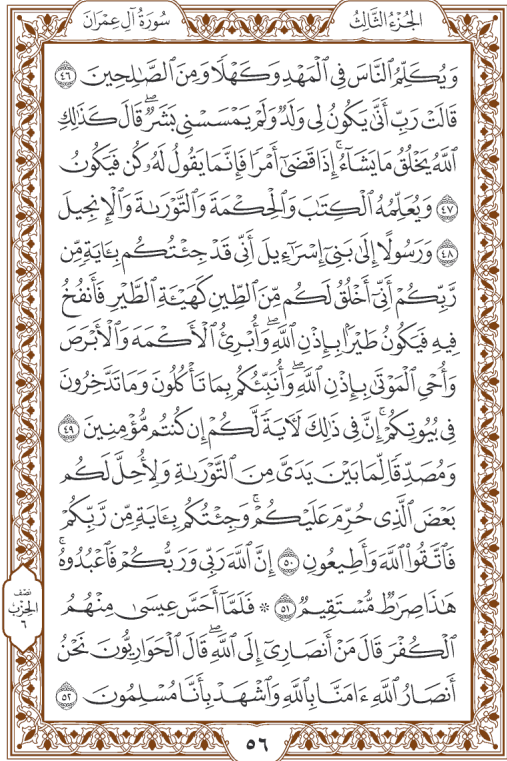 الجُزْءُ الثَّالِثُ
سُورَةُ آلِ عِمْرَانَ
وَيُكَلِّمُ ٱلنَّاسَ فِي ٱلْمَهْدِ وَكَهْلًا وَمِنَ ٱلصَّٰلِحِينَ ٤٦
قَالَتْ رَبِّ أَنَّىٰ يَكُونُ لِي وَلَدٌ وَلَمْ يَمْسَسْنِي بَشَرٌۖ قَالَ كَذَٰلِكِ
ٱللَّهُ يَخْلُقُ مَا يَشَآءُۚ إِذَا قَضَىٰٓ أَمْرًا فَإِنَّمَا يَقُولُ لَهُۥ كُن فَيَكُونُ
٤٧ وَيُعَلِّمُهُ ٱلْكِتَٰبَ وَٱلْحِكْمَةَ وَٱلتَّوْرَىٰةَ وَٱلْإِنجِيلَ
٤٨ وَرَسُولًا إِلَىٰ بَنِيٓ إِسْرَٰٓءِيلَ أَنِّي قَدْ جِئْتُكُم بِـَٔايَةٍ مِّن
رَّبِّكُمْ أَنِّيٓ أَخْلُقُ لَكُم مِّنَ ٱلطِّينِ كَهَيْـَٔةِ ٱلطَّيْرِ فَأَنفُخُ
فِيهِ فَيَكُونُ طَيْرًۢا بِإِذْنِ ٱللَّهِۖ وَأُبْرِئُ ٱلْأَكْمَهَ وَٱلْأَبْرَصَ
وَأُحْيِ ٱلْمَوْتَىٰ بِإِذْنِ ٱللَّهِۖ وَأُنَبِّئُكُم بِمَا تَأْكُلُونَ وَمَا تَدَّخِرُونَ
فِي بُيُوتِكُمْۚ إِنَّ فِي ذَٰلِكَ لَأٓيَةً لَّكُمْ إِن كُنتُم مُّؤْمِنِينَ ٤٩
وَمُصَدِّقًا لِّمَا بَيْنَ يَدَيَّ مِنَ ٱلتَّوْرَىٰةِ وَلِأُحِلَّ لَكُم
بَعْضَ ٱلَّذِي حُرِّمَ عَلَيْكُمْۚ وَجِئْتُكُم بِـَٔايَةٍ مِّن رَّبِّكُمْ
فَٱتَّقُوا۟ ٱللَّهَ وَأَطِيعُونِ ٥٠ إِنَّ ٱللَّهَ رَبِّي وَرَبُّكُمْ فَٱعْبُدُوهُۚ
هَٰذَا صِرَٰطٌ مُّسْتَقِيمٌ ٥١ ۞ فَلَمَّآ أَحَسَّ عِيسَىٰ مِنْهُمُ
ٱلْكُفْرَ قَالَ مَنْ أَنصَارِيٓ إِلَى ٱللَّهِۖ قَالَ ٱلْحَوَارِيُّونَ نَحْنُ
أَنصَارُ ٱللَّهِ ءَامَنَّا بِٱللَّهِ وَٱشْهَدْ بِأَنَّا مُسْلِمُونَ ٥٢
نصف
الحِزْب
٦
٥٦